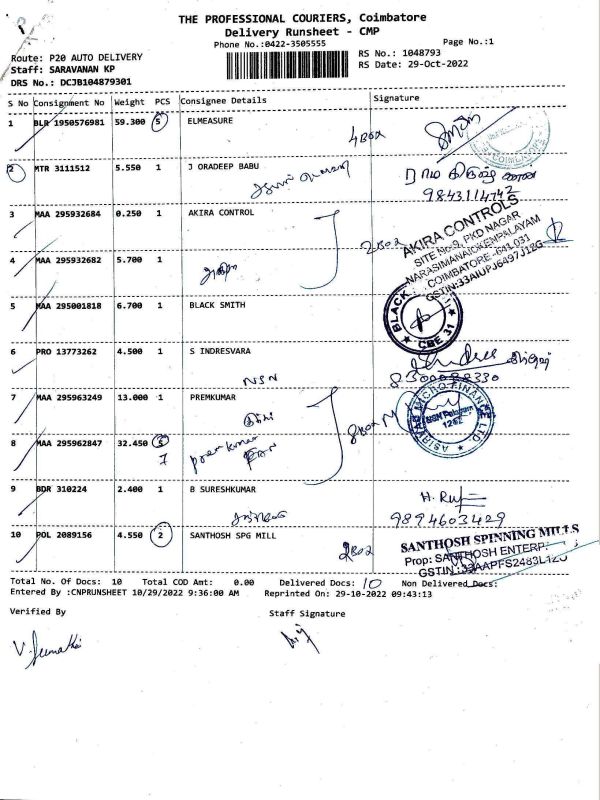 THE PROFESSIONAL COURIERS, Coimbatore
Delivery Runsheet - CMP
Phone No.:0422-3505555
Page No.:1
Route: P20 AUTO DELIVERY
RS No.: 1048793
Staff: SARAVANAN KP
RS Date: 29-Oct-2022
DRS No.: DCJB104879301
S No Consignment No Weight PCS Consignee Details Signature
1 BLR 1950576981 59.300 5 ELMEASURE
4 BOX
COIMBATORE
2 MTR 3111512 5.550 1 J ORADEEP BABU
9843114742
3 MAA 295932684 0.250 1 AKIRA CONTROL
2 BOX
AKIRA CONTROLS
SITE No-9, PKD NAGAR
NARASIMANAICKENPALAYAM
COIMBATORE -641 031
4 MAA 295932682 5.700 1
5 MAA 295001818 6.700 1 BLACK SMITH
BLACK
CBE 31
6 PRO 13773262 4.500 1 S INDRESVARA
8300088330
NSN
7 MAA 295963249 13.000 1 PREMKUMAR
8 BOX
8 MAA 295962847 32.450
7
Premkumar
9 BDR 310224 2.400 1 B SURESHKUMAR
9894603429
10 POL 2089156 4.550 2 SANTHOSH SPG MILL
2 BOX
SANTHOSH SPINNING MILLS
Prop: SANTHOSH ENTERP
Total No. Of Docs: 10 Total COD Amt: 0.00 Delivered Docs: 10 Non Delivered Docs:
Entered By :CNPRUNSHEET 10/29/2022 9:36:00 AM Reprinted On: 29-10-2022 09:43:13
Verified By
Staff Signature